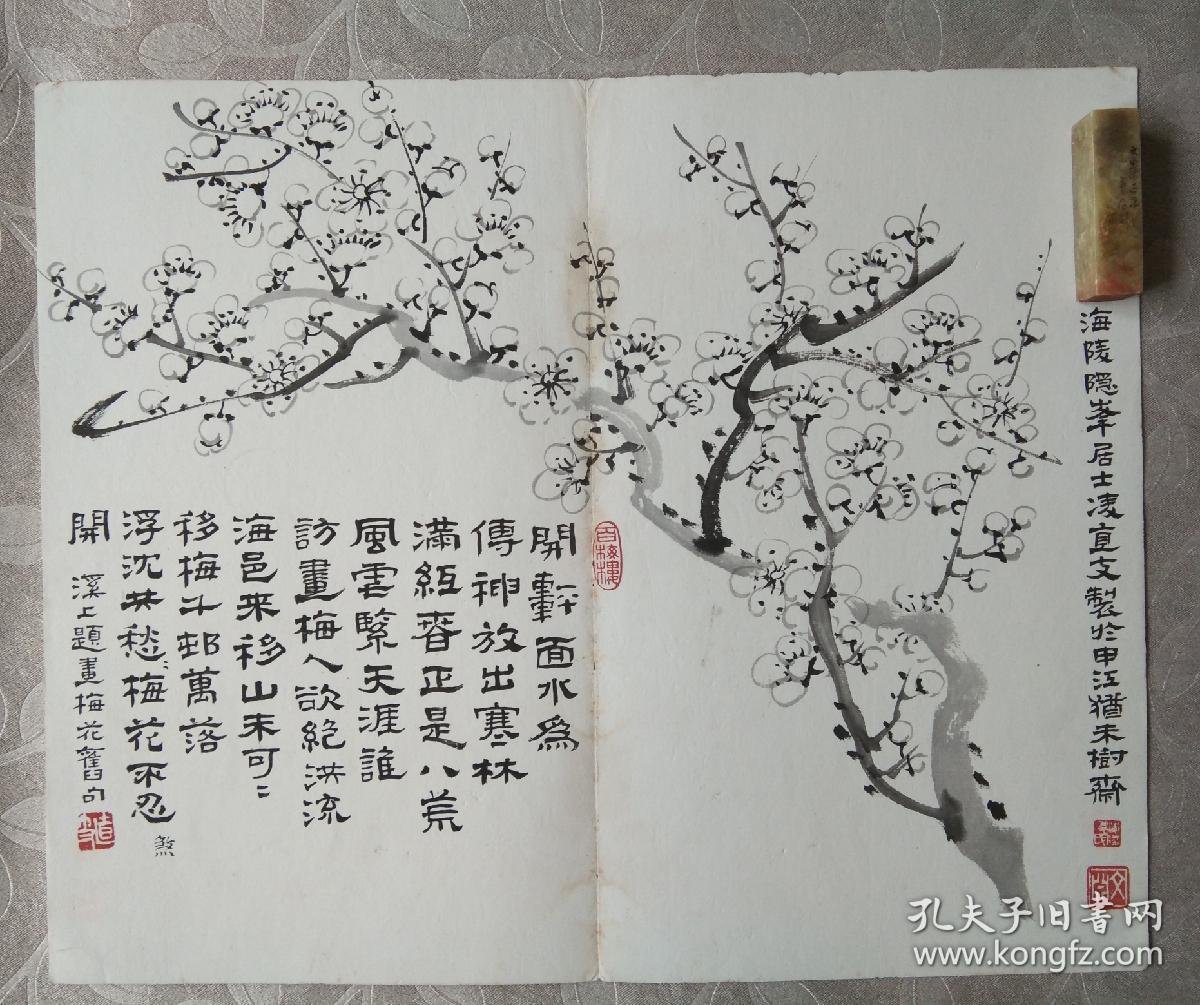 海陵隐峯居士凌宜文製於申江猶未樹齋
開軒面水為
傳神放出寒林
滿紙香正是八荒
風雲緊天涯誰
訪畫梅人欲絕洪流
海邑來移山未可〻
移梅千邨萬落
浮沈共愁梅花不忍
煞
開 溪上題畫梅花舊句
百梅樓
孔夫子旧书网
www.kongfz.com